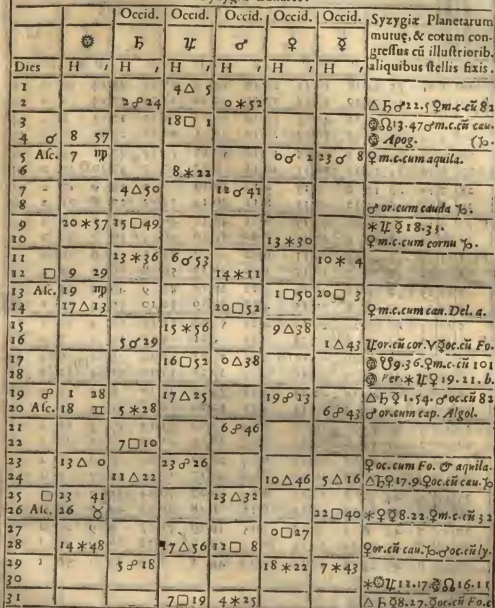 Occid. Occid. Occid. Occid. Occid. Syzygiæ Planetarum
☉ ♄ ♃ ♂ ♀ ☿ mutuę, & eorum con-
gressus cū illustriorib.
Dies H ′ H ′ H ′ H ′ H ′ H ′ aliquibus stellis fixis.
1 4△ 5
2 2☍24 0✶52 △♄♂22.5♀m.c.cū 82
3 18□ 1 ☊13.47♂m.c.cū cau.
4 ☌ 8 57 Apog. (♑.
5 Asc. 7 ♍ 0☌ 2 23☌ 8 ♀m.c.cum aquila.
6 8✶22
7 4△50 12☌41
8 ♂or.cum cauda ♑.
9 20✶57 15□49 ✶♃☿18.33.
10 13✶30 ♀m.c.cum cornu ♑.
11 23✶36 6☌53 10✶ 4
12 □ 9 29 14✶11
13 Asc. 19 ♍ 1□50 20□ 3
14 17△13 20□52 ♀m.c.cum can. Del. a.
15 15✶56 9△38
16 5☌29 1△43 ♃or.cū cor.♈☿oc.cū Fo.
17 16□52 0△38 ☋9.36.♀m.c.cū 101
18 Per.✶♃♀19.21.b.
19 ☍ 1 28 17△25 19☍13 △♄☿1.54.♂oc.cū 82
20 Asc. 18 ♊ 5✶28 6☍43 ♂or.cum cap. Algol.
21 6☍46
22 7□10
23 13△ 0 23☍26 ♀oc.cum Fo. & aquila.
24 11△22 10△46 5△16 △♄♀17.9.♀oc.cū cau.♑
25 □ 23 41 23△32
26 Asc. 26 ♉ 22□40 ✶♀☿8.22.♀m.c.cū 32
27 0□27
28 14✶48 17△56 12□ 8 ♀or.cū cau.♑.♂oc.cū ly.
29 5☍18 18✶22 7✶43
30 ✶☉♃12.17.☊16.11
31 7□19 4✶25 △♄☿8.27.☿oc.cū Fo.c